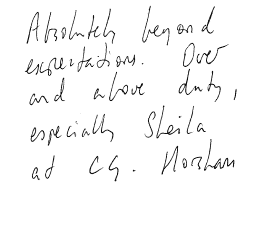 Absolutely beyond
expectations. Over
and above duty,
especially Sheila
at CG. Horsham